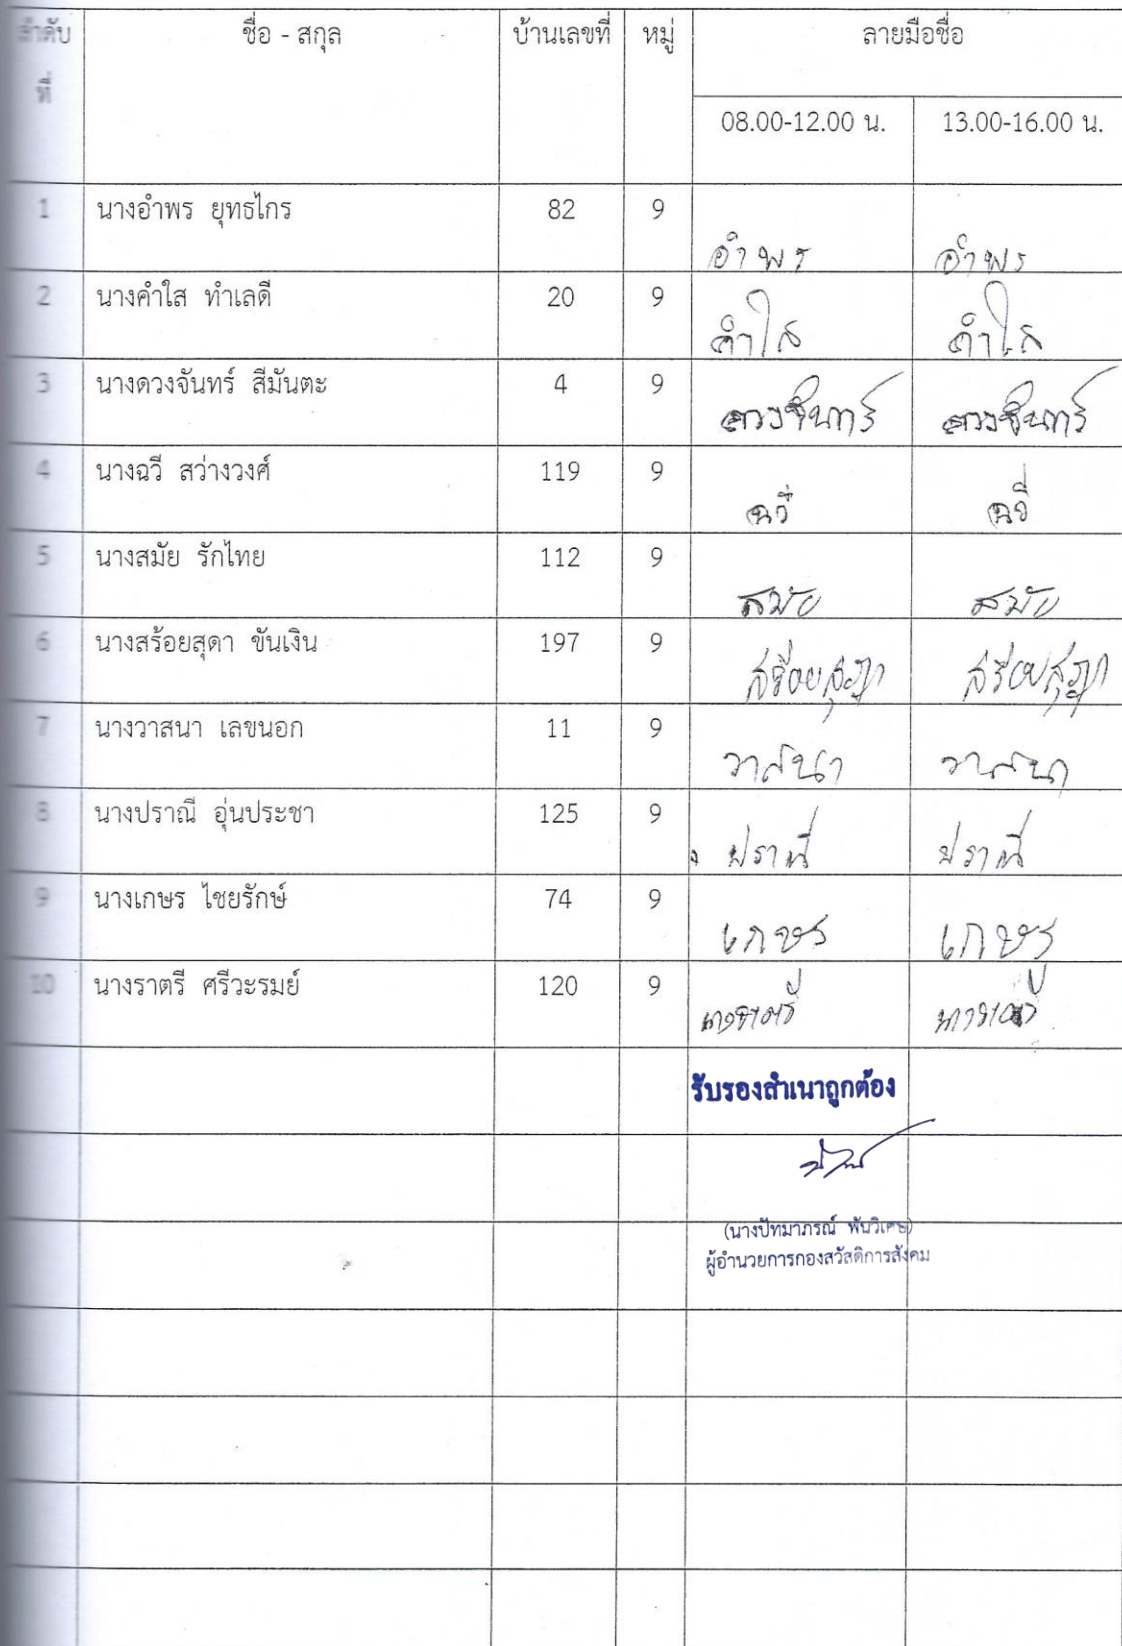 ลำดับ ชื่อ - สกุล บ้านเลขที่ หมู่ ลายมือชื่อ
ที่
08.00-12.00 น. 13.00-16.00 น.
1 นางอำพร ยุทธไกร 82 9
อำพร อำพร
2 นางคำใส ทำเลดี 20 9
คำใส คำใส
3 นางดวงจันทร์ สีมันตะ 4 9
ดวงจันทร์ ดวงจันทร์
4 นางฉวี สว่างวงศ์ 119 9
ฉวี ฉวี
5 นางสมัย รักไทย 112 9
สมัย สมัย
6 นางสร้อยสุดา ขันเงิน 197 9
สร้อยสุดา สร้อยสุดา
7 นางวาสนา เลขนอก 11 9
วาสนา วาสนา
8 นางปราณี อุ่นประชา 125 9
ปราณี ปราณี
9 นางเกษร ไชยรักษ์ 74 9
เกษร เกษร
10 นางราตรี ศรีวะรมย์ 120 9
นางราตรี นางราตรี
รับรองสำเนาถูกต้อง
(นางปัทมาภรณ์ พันวิเศษ)
ผู้อำนวยการกองสวัสดิการสังคม